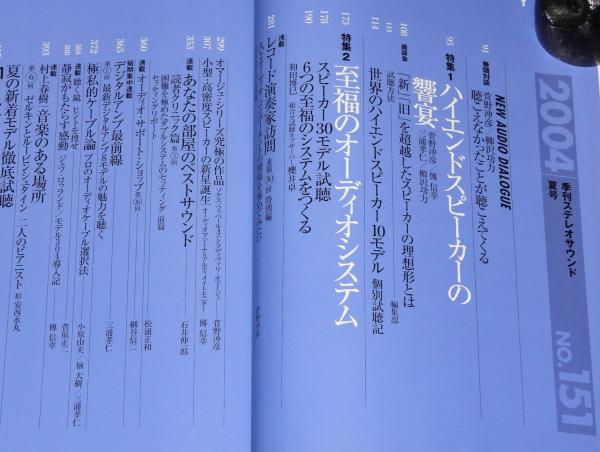 2004
季刊ステレオサウンド
夏号
No.151
91
巻頭対談
NEW AUDIO DIALOGUE
菅野沖彦/柳沢功力
聴こえなかったことが聴こえてくる
95
特集1
ハイエンドスピーカーの
響宴
菅野沖彦/傅信幸
三浦孝仁/柳沢功力
108
座談会
「新一旧」を超越したスピーカーの理想形とは
113
試聴方法
編集部
114
世界のハイエンドスピーカー10モデル 個別試聴記
173
特集2
至福のオーディオシステム
178
スピーカー30モデル試聴
190
6つの至福のシステムをつくる
和田博巳
281
連載
レコード演奏家訪問
連載30回 特別編
299
オマージュシリーズ究極の作品
菅野沖彦
307
小型・高密度スピーカーの新星誕生
傅 信幸
353
連載
あなたの部屋のベストサウンド
読者クリニック篇
困難を極めたダブルシステムのセッティング/前篇
石井伸一郎
360
連載
オーディオ・サポート・ショップ
松浦正和
細谷信二
365
短期集中連載
デジタルアンプ最前線
最新デジタルアンプ8モデルの魅力を聴く
三浦孝仁
372
極私的ケーブル論
プロのオーディオケーブル選択法
小原由夫/楢 大樹/三浦孝仁
384
連載
聴く鏡
ヒントを捜せ
菅原正二
388
静寂がもたらす感動
ジェフ・ロウランド/モデル304導入記
傅 信幸
393
連載
村上春樹/音楽のある場所
第6回
ゼルキンとルービンシュタイン 二人のピアニスト
絵・安西水丸
夏の新着モデル徹底試聴